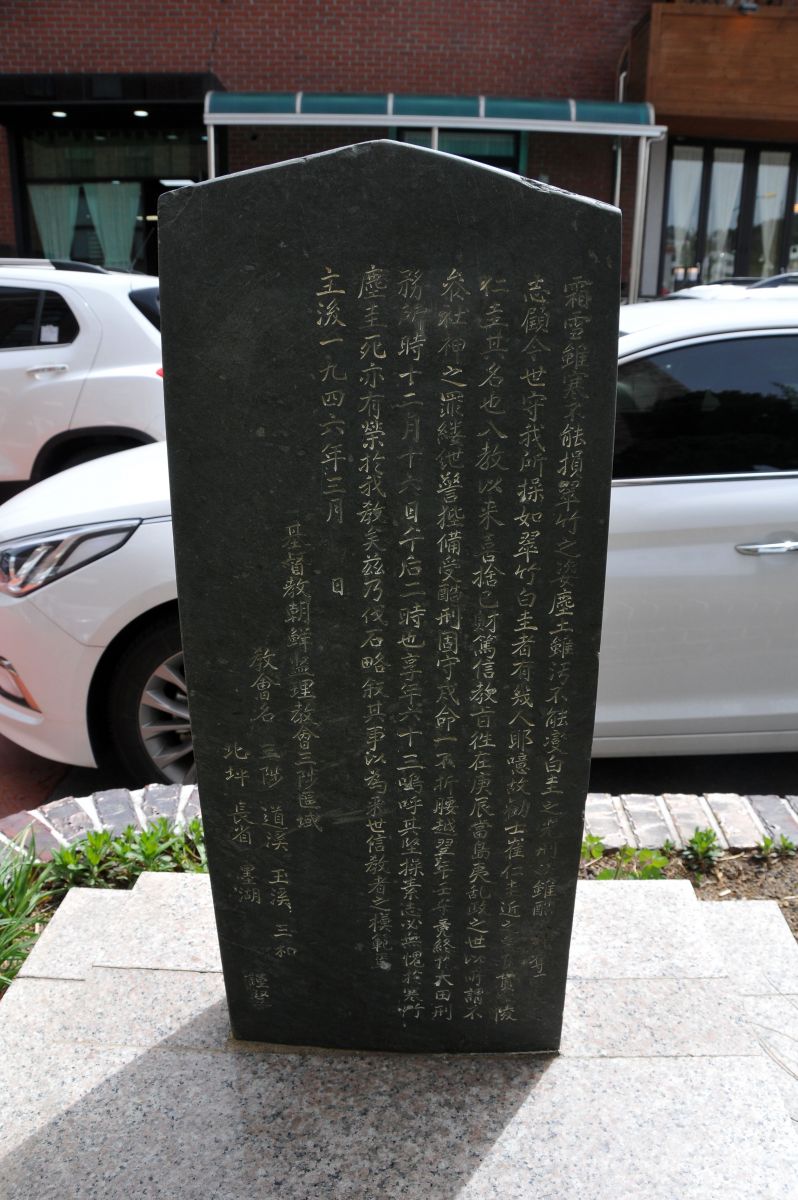 霜雪雖寒不能損翠竹之姿塵土雖汚不能變白圭之光刑雖酷
志顧今世守我所操如翠竹白圭者有幾人耶噫故勸士崔仁圭近之矣貫江陵
仁圭其名也入教以来喜捨己財篤信教旨往在庚辰當島夷乱政之世以所謂不
參社神之罪縷他警摧備受酷刑固守戒命一不折腰越翌年壬午竟終於大田刑
務所時十二月十六日午后二時也享年六十三嗚呼其堅操素志必無愧於
塵圭死亦有榮於我教矣茲乃伐石略敘其事以為来世信教者之模範焉
主後一九四六年三月 日
基督教朝鮮監理教會三陟區域
教會名 三陟 道溪 玉溪 三和
北坪 長省 墨湖 謹竪